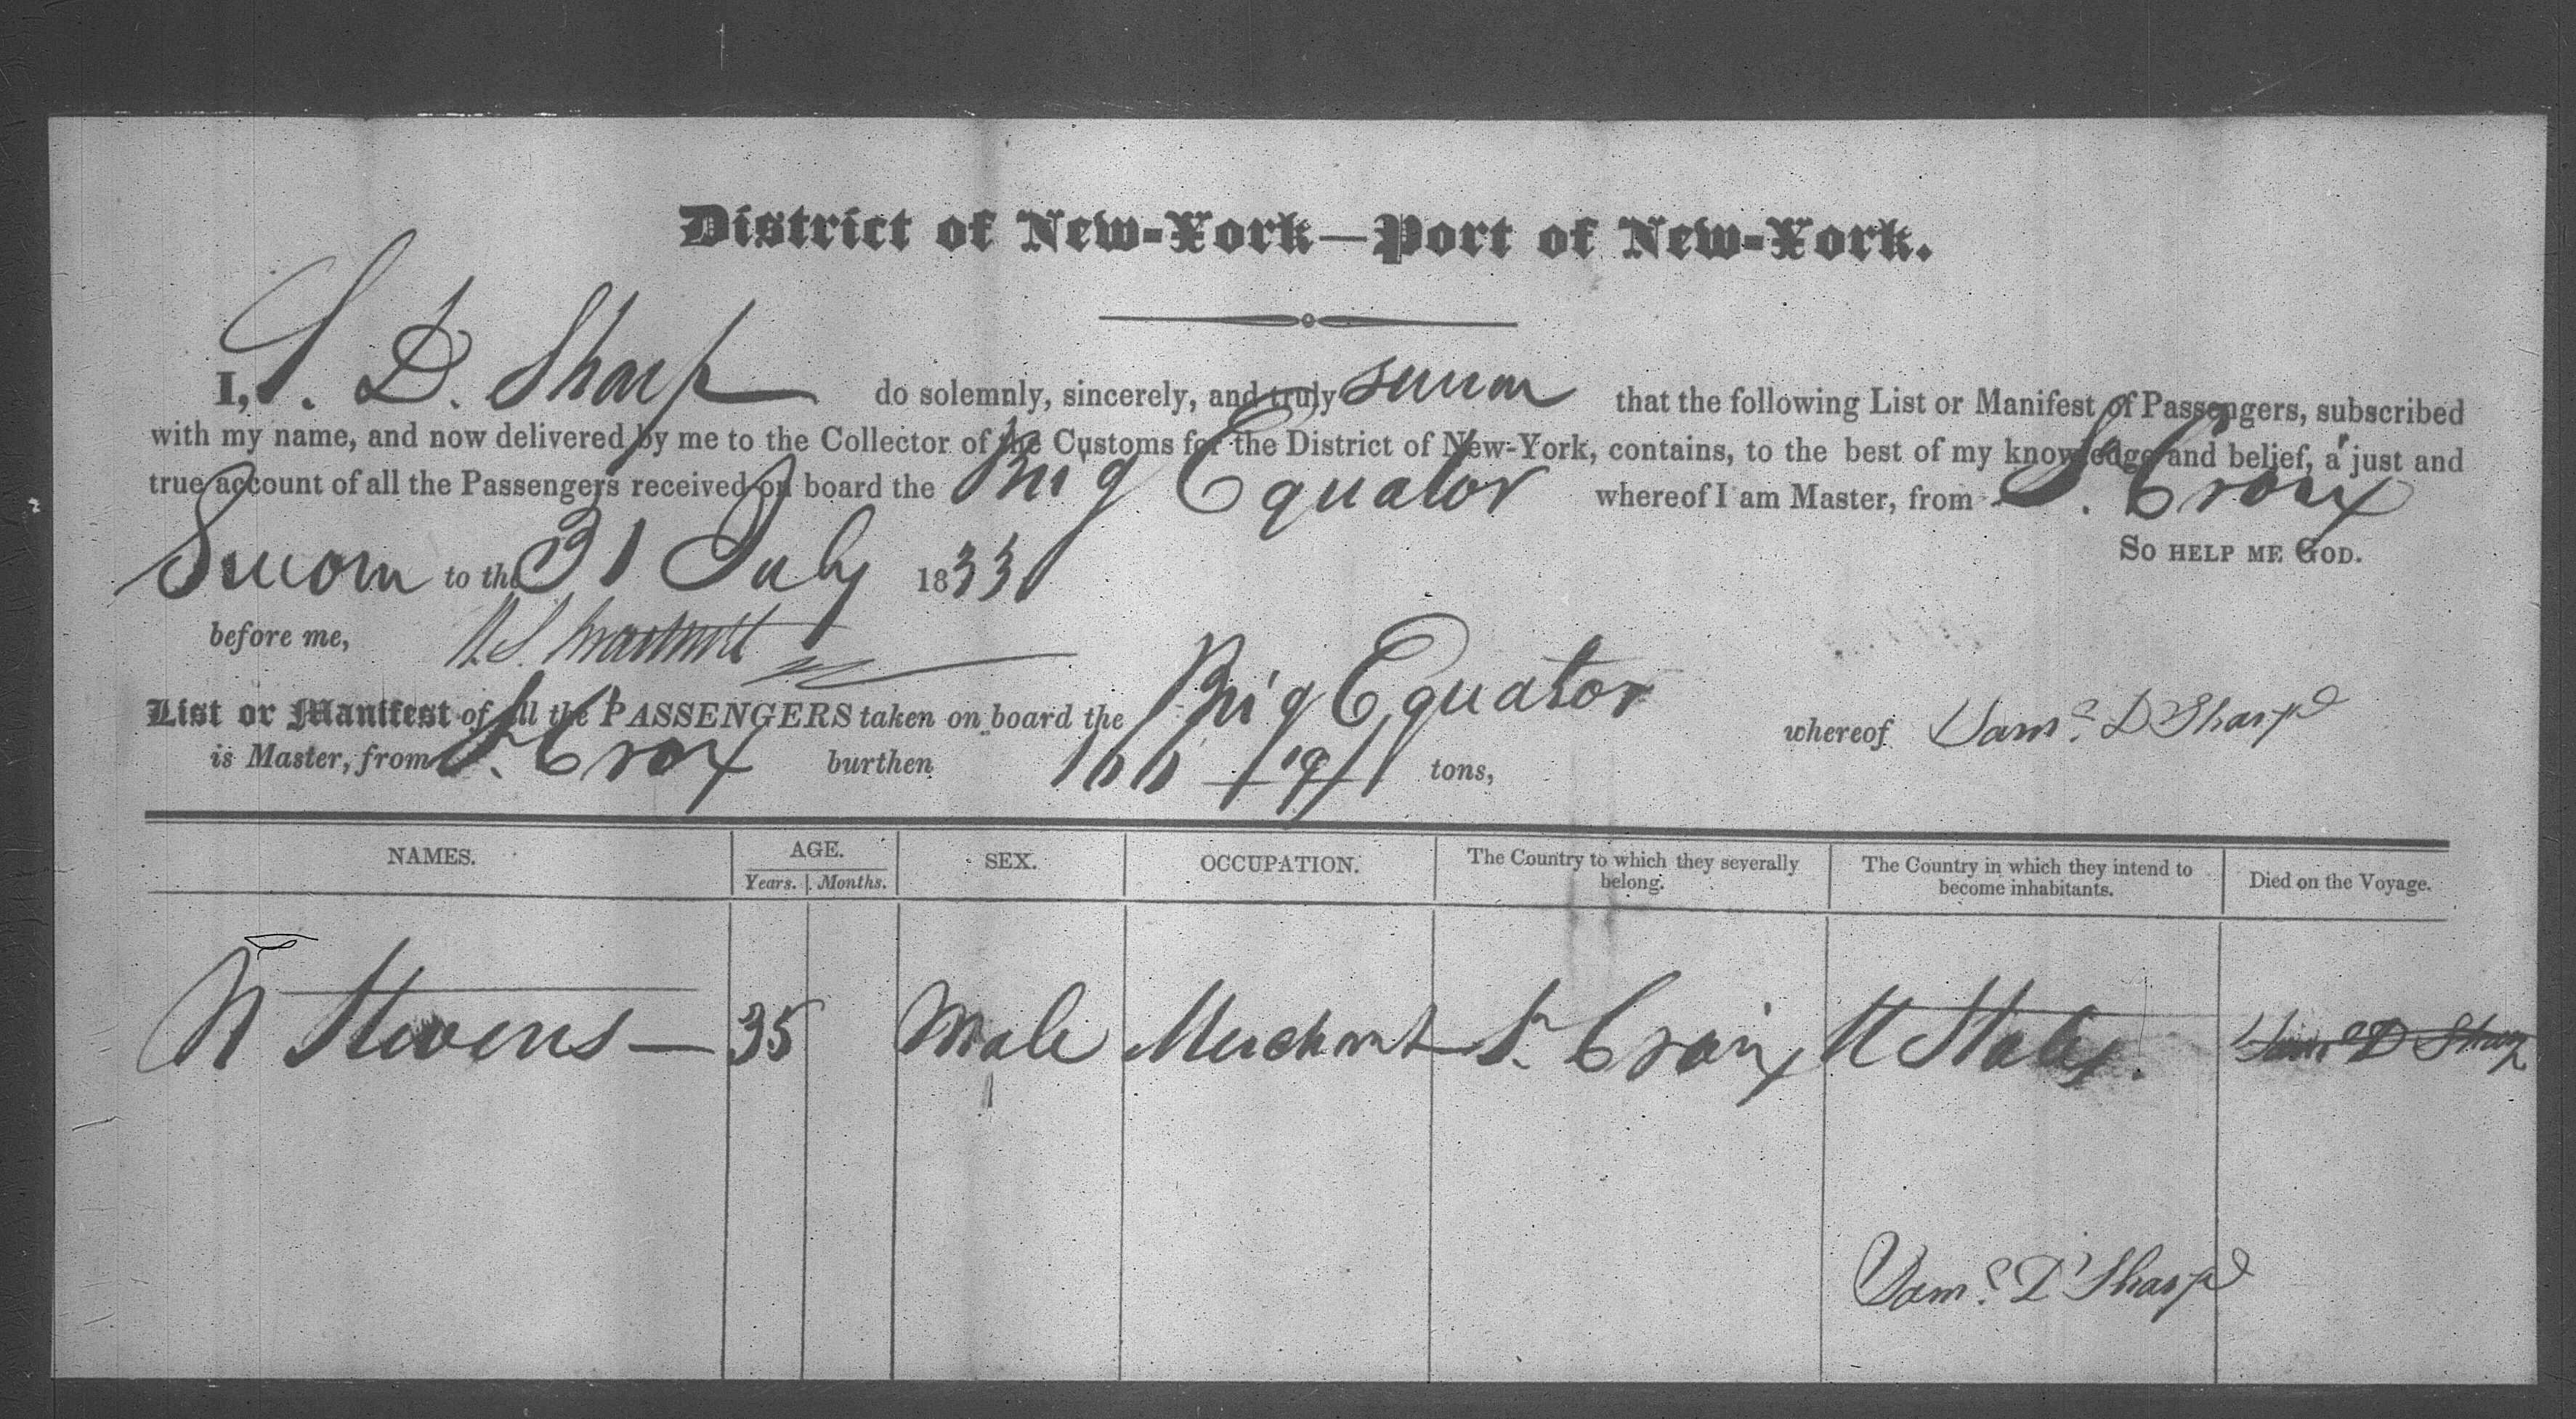 District of New-York—Port of New-York.
I, S. D. Sharp do solemnly, sincerely, and truly swear that the following List or Manifest of Passengers, subscribed
with my name, and now delivered by me to the Collector of the Customs for the District of New-York, contains, to the best of my knowledge and belief, a just and
true account of all the Passengers received on board the Brig Equator whereof I am Master, from St. Croix
So help me God.
Sworn to the 31 July 1833
before me,
List or Manifest of all the PASSENGERS taken on board the Brig Equator whereof Saml. D Sharp
is Master, from St. Croix burthen tons,
NAMES. AGE. SEX. OCCUPATION. The Country to which they severally belong. The Country in which they intend to become inhabitants. Died on the Voyage.
Years. Months.
Stevens 35 Male Merchant St. Croix U States. Saml D Sharp
Saml. D Sharp